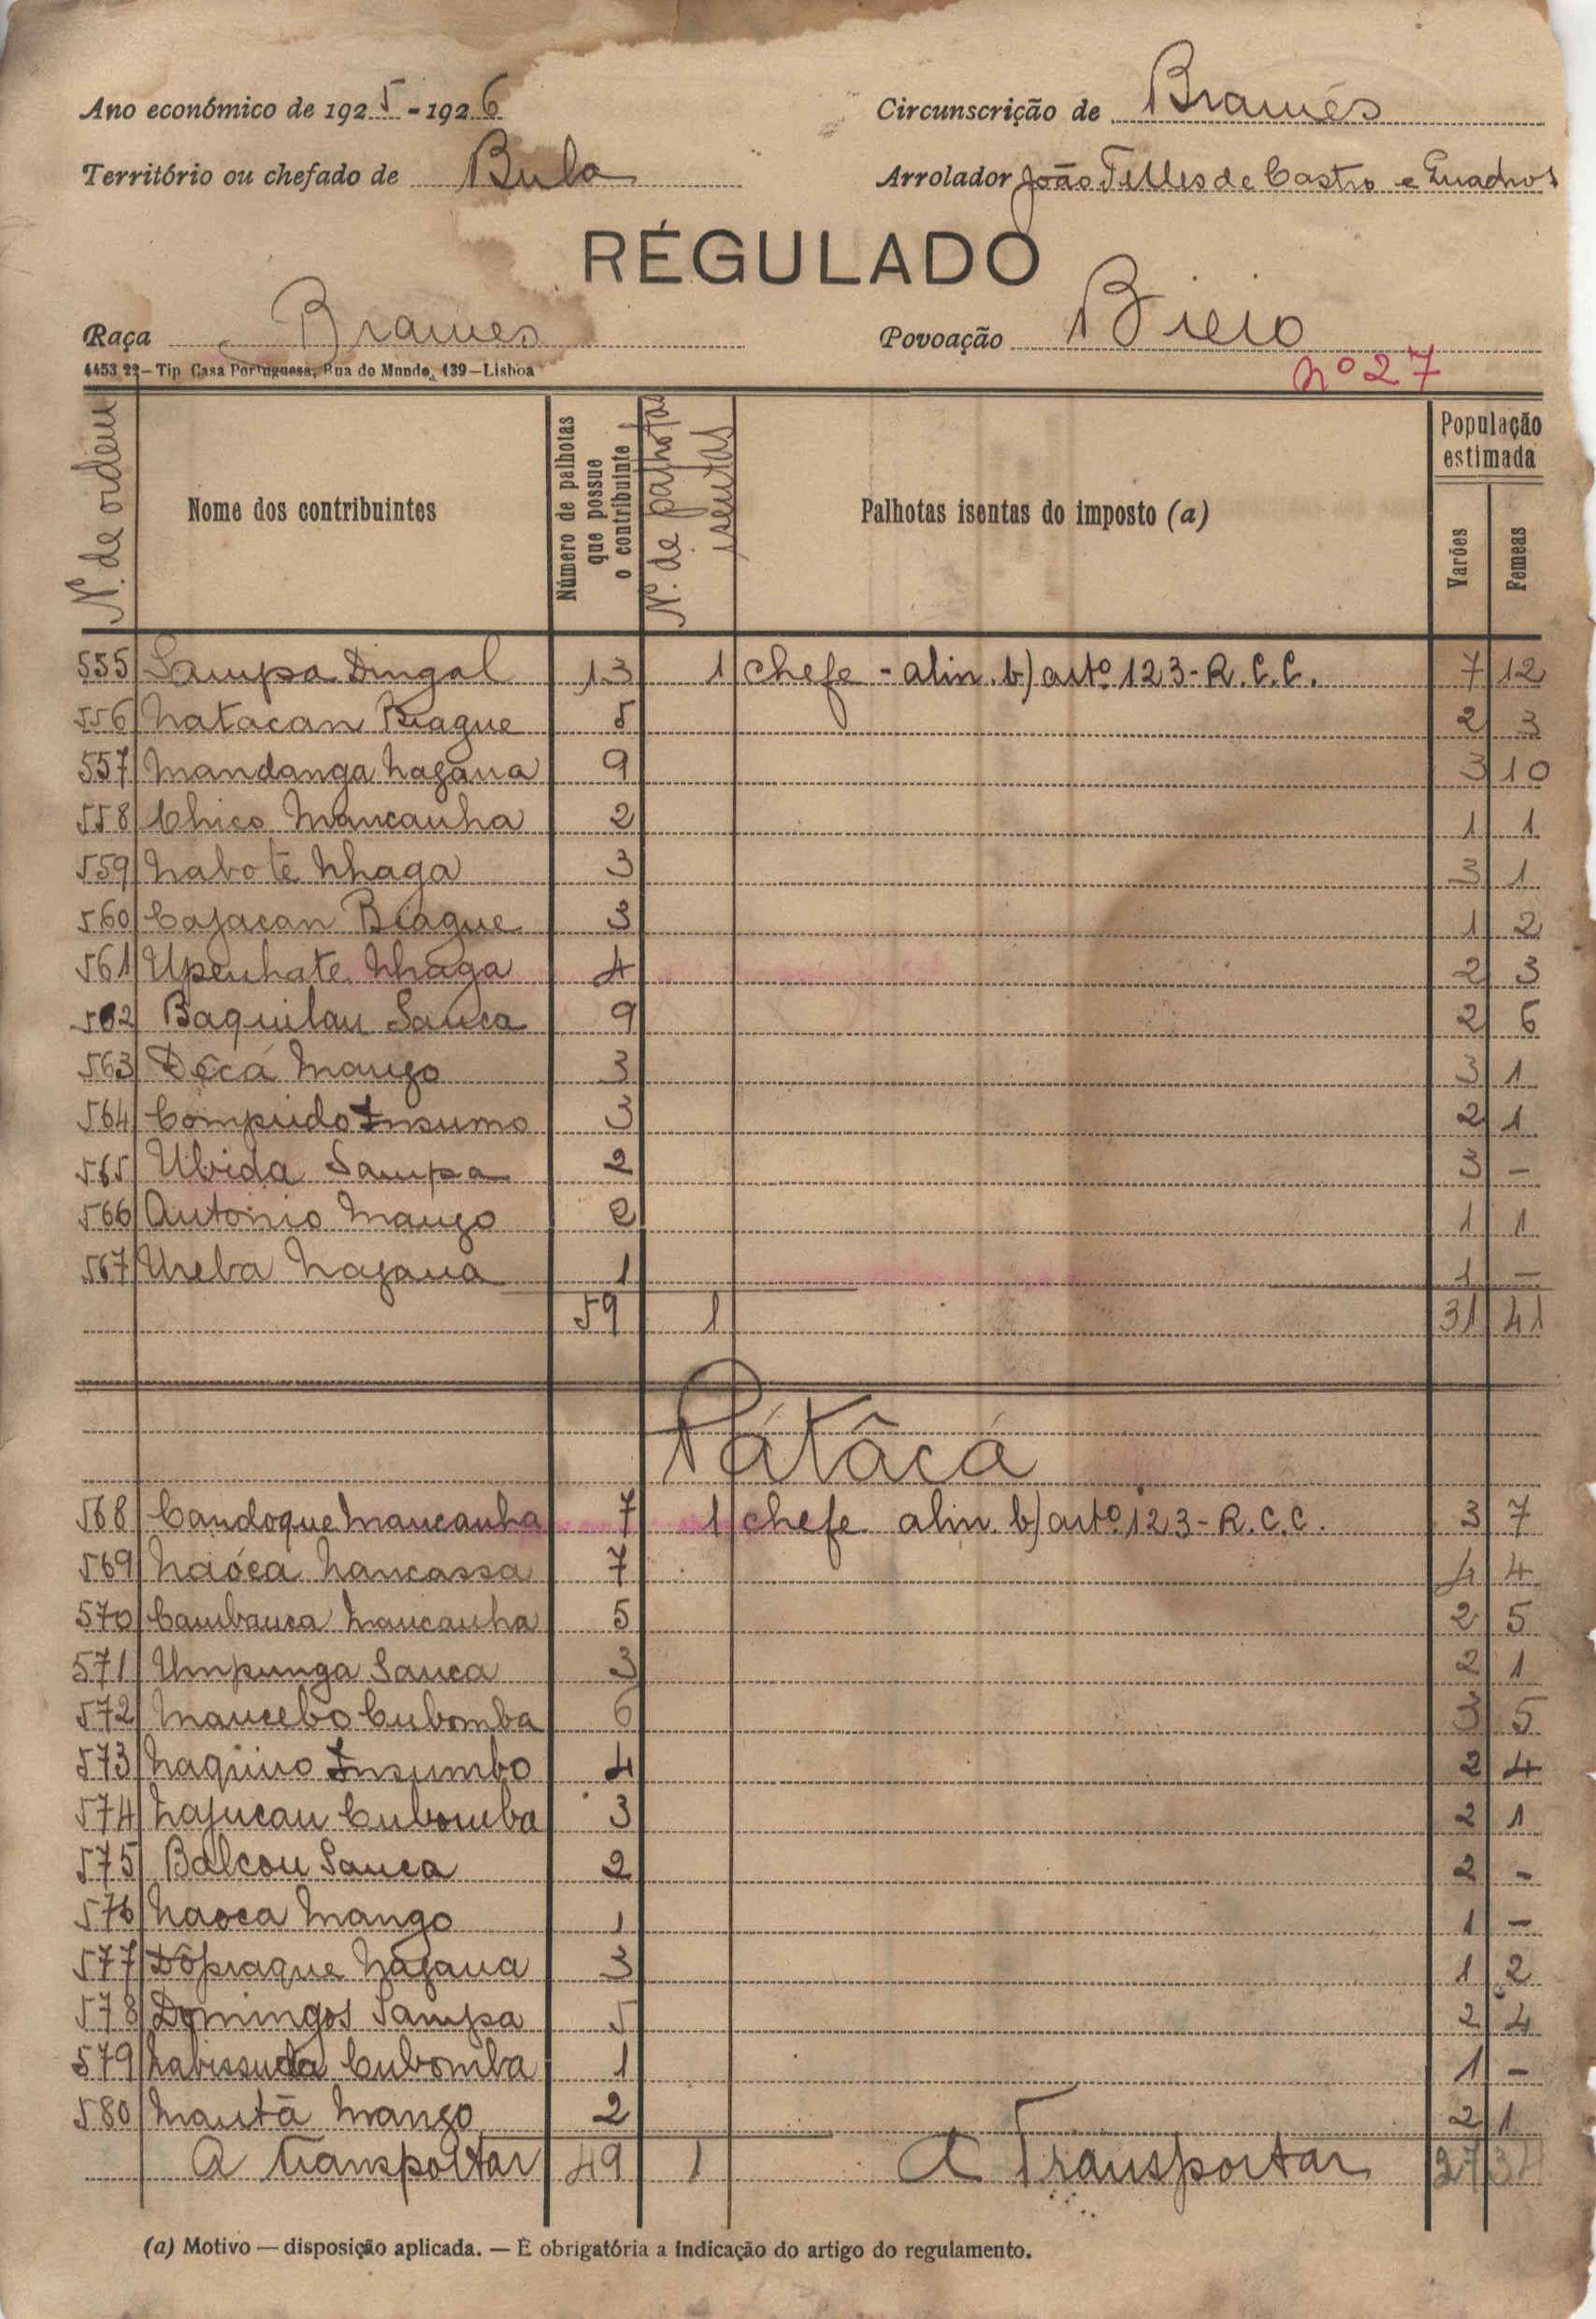 Ano económico de 1925-1926
Circunscrição de Brames
Território ou chefado de Bula
Arrolador João Telles de Castro e Quadros
RÉGULADO
Raça Brames
Povoação Bieio
4453 22 – Tip. Casa Portuguesa, Rua do Mundo, 139 – Lisboa
nº 27
Nº. de ordem
Nome dos contribuintes
Número de palhotas que possue o contribuinte
Nº. de palhotas isentas
Palhotas isentas do imposto (a)
População estimada
Varões
Femeas
555 Sampa Dingal 13 1 chefe - alin. b) artº 123-R.C.C. 7 12
556 Natacan Biague 5 2 3
557 Mandanga Nagana 9 3 10
558 Chico Mancanha 2 1 1
559 Nabote Nhaga 3 3 1
560 Cajacan Biague 3 1 2
561 Upenhate Nhaga 4 2 3
562 Baquilan Sanca 9 2 6
563 Dócá Mango 3 3 1
564 Compudo Insumo 3 2 1
565 Ubida Sampa 2 3 –
566 Antonio Mango 2 1 1
567 Ureba Nagana 1 1 –
59 1 31 41
Pátâcá
568 Candoque Mancanha 7 1 chefe alin. b) artº 123-R.C.C. 3 7
569 Naóca Nancassa 7 4 4
570 Cambanca Mancanha 5 2 5
571 Umpunga Sanca 3 2 1
572 Mancebo Cubomba 6 3 5
573 Naquiro Insumbo 4 2 4
574 Najucan Cubomba 3 2 1
575 Balcou Sanca 2 2 -
576 Naoca Mango 1 1 –
577 Nagana 3 1 2
578 Domingos Sampa 5 2 4
579 Nabissuda Cubomba 1 1 –
580 Mautã Mango 2 2 1
A transportar 49 1 A Transportar 27 34
(a) Motivo — disposição aplicada. — É obrigatória a indicação do artigo do regulamento.